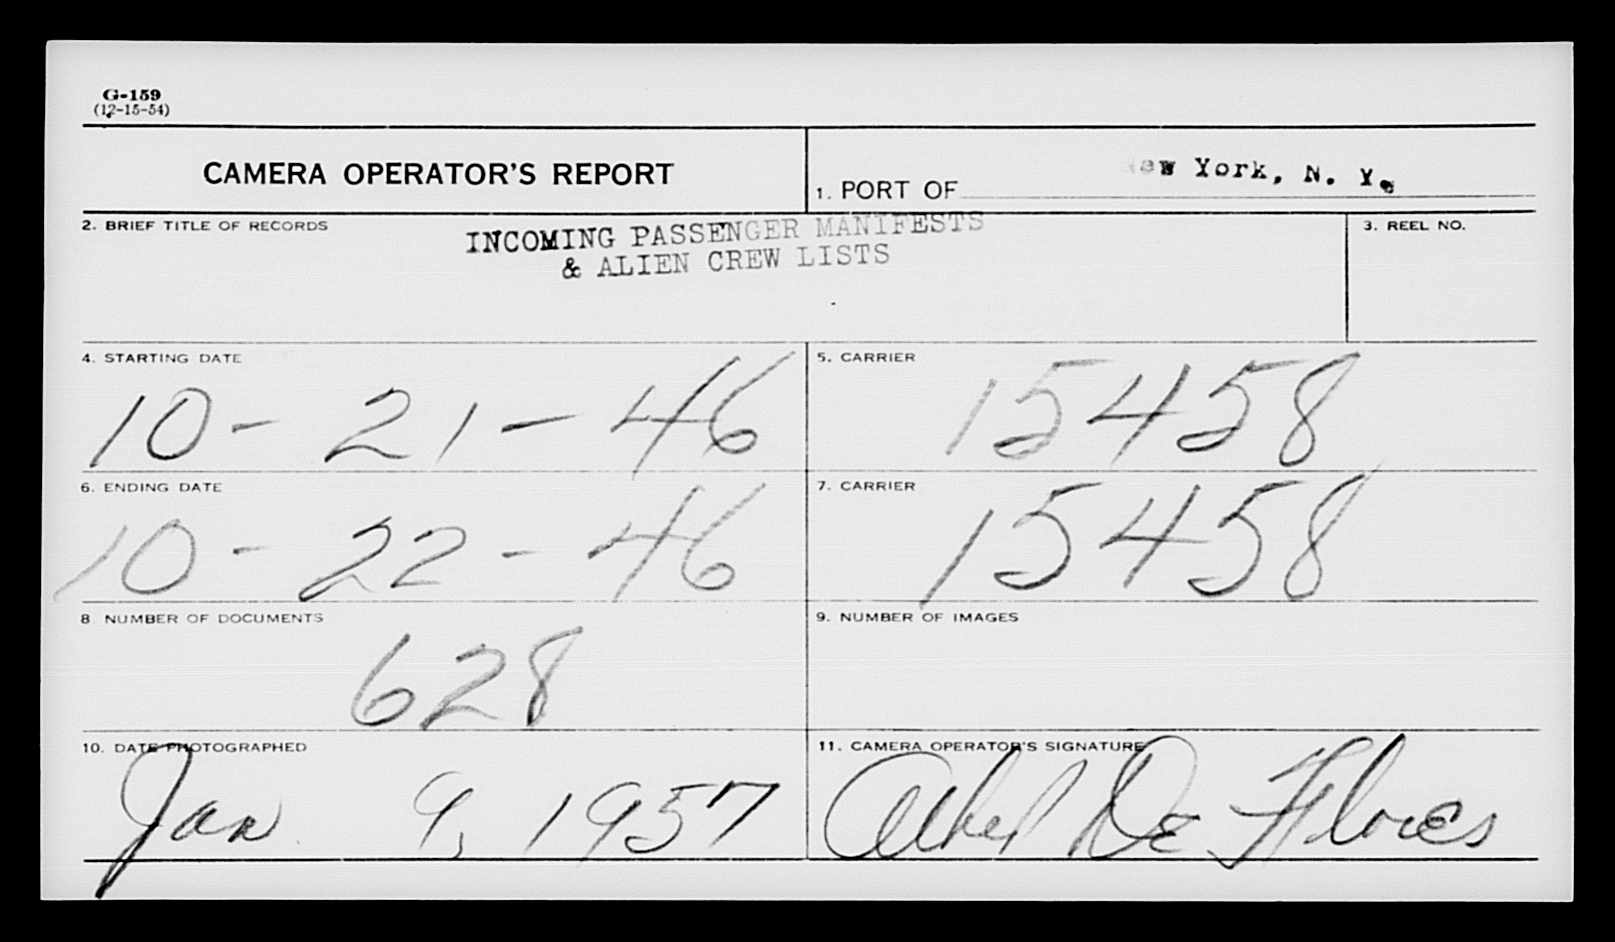 G-159
(12-15-54)
CAMERA OPERATOR'S REPORT
1. PORT OF New York, N. Y.
2. BRIEF TITLE OF RECORDS
INCOMING PASSENGER MANIFESTS
& ALIEN CREW LISTS
3. REEL NO.
4. STARTING DATE
10-21-46
5. CARRIER
15458
6. ENDING DATE
10-22-46
7. CARRIER
15458
8 NUMBER OF DOCUMENTS
628
9. NUMBER OF IMAGES
10. DATE PHOTOGRAPHED
Jan 9, 1957
11. CAMERA OPERATOR'S SIGNATURE
De Flores